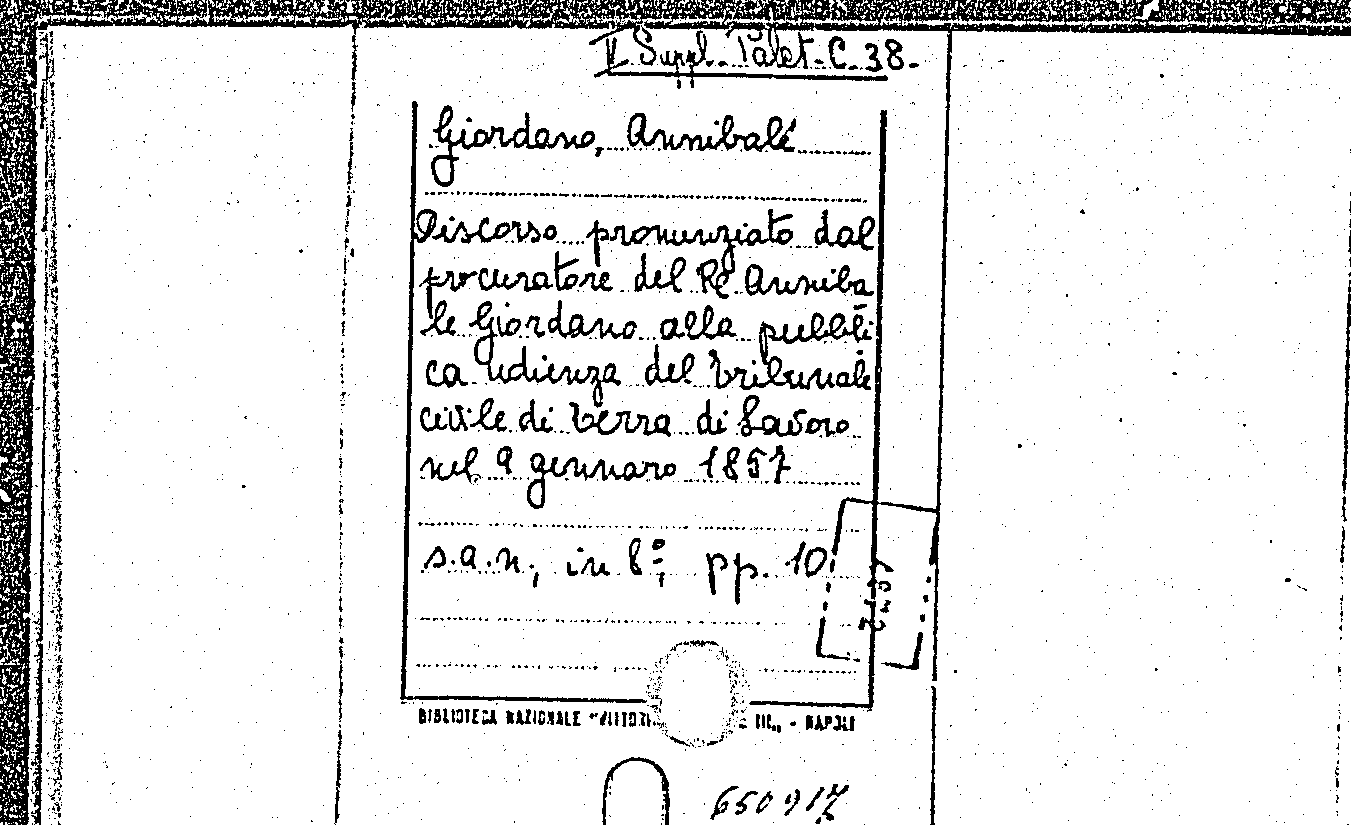 II Suppl. Palat. C. 38.
Giordano, Annibale
Discorso pronunziato dal
procuratore del Re Anniba
le Giordano alla pubbli
ca udienza del tribunale
civile di terra di Lavoro
nel 9 gennaro 1857
s.a.n., in 8º, pp. 10
BIBLIOTECA NAZIONALE "VITTORI III„ - NAPOLI
650917